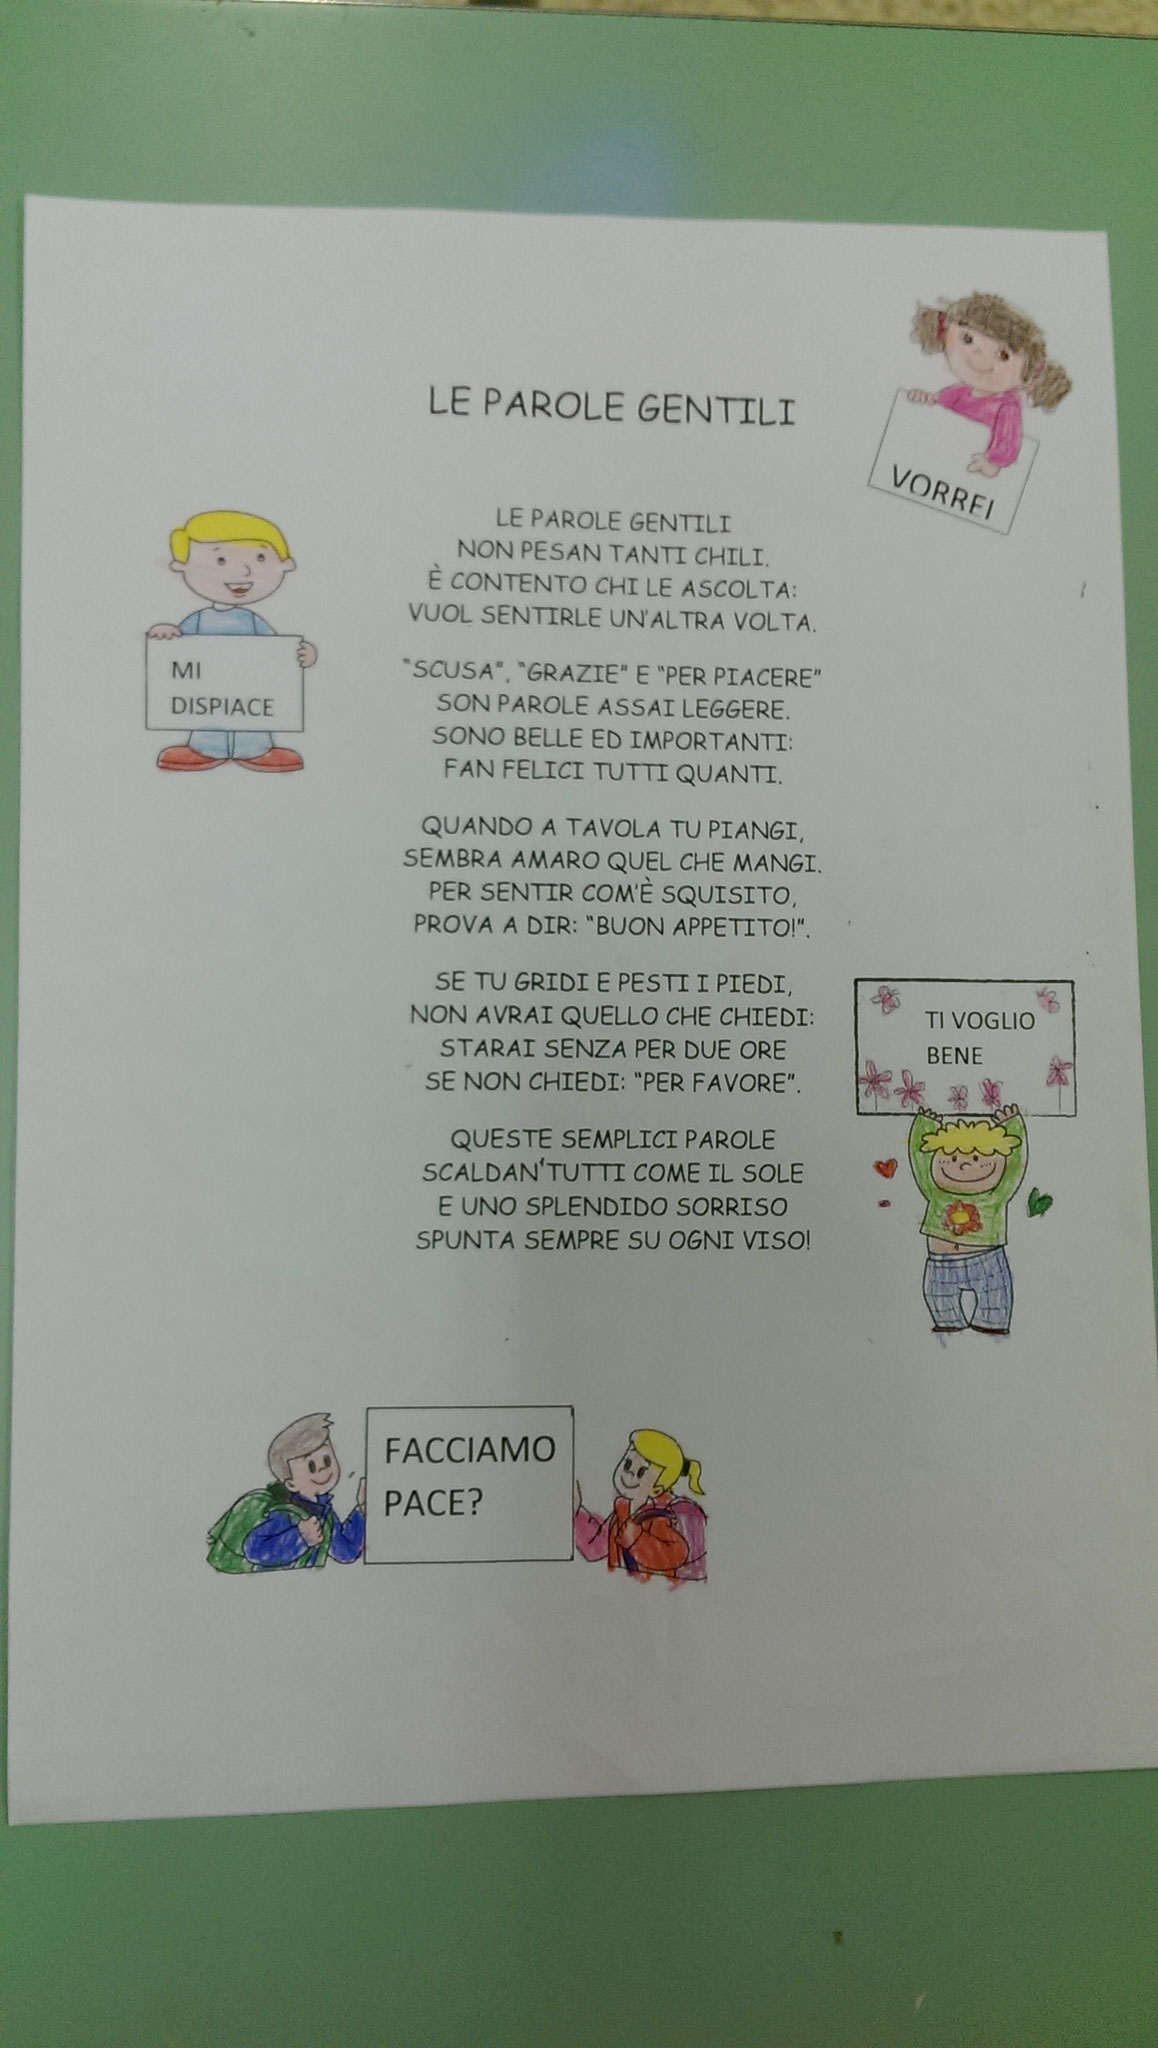 LE PAROLE GENTILI
VORREI
LE PAROLE GENTILI
NON PESAN TANTI CHILI.
È CONTENTO CHI LE ASCOLTA:
VUOL SENTIRLE UN'ALTRA VOLTA.
MI
DISPIACE
"SCUSA", "GRAZIE" E "PER PIACERE"
SON PAROLE ASSAI LEGGERE.
SONO BELLE ED IMPORTANTI:
FAN FELICI TUTTI QUANTI.
QUANDO A TAVOLA TU PIANGI,
SEMBRA AMARO QUEL CHE MANGI.
PER SENTIR COM'È SQUISITO,
PROVA A DIR: "BUON APPETITO!".
SE TU GRIDI E PESTI I PIEDI,
NON AVRAI QUELLO CHE CHIEDI:
STARAI SENZA PER DUE ORE
SE NON CHIEDI: "PER FAVORE".
TI VOGLIO
BENE
QUESTE SEMPLICI PAROLE
SCALDAN'TUTTI COME IL SOLE
E UNO SPLENDIDO SORRISO
SPUNTA SEMPRE SU OGNI VISO!
FACCIAMO
PACE?